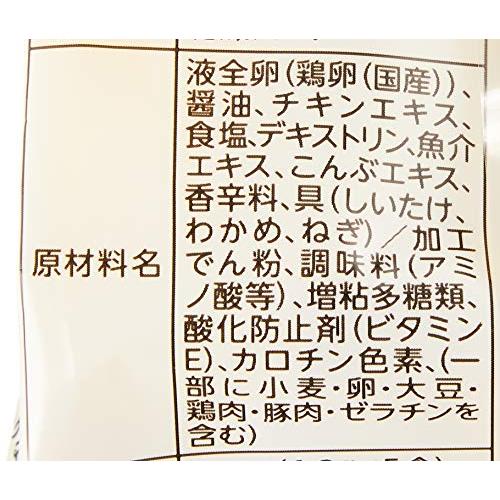 液全卵(鶏卵(国産))、
醤油、チキンエキス、
食塩、デキストリン、魚介
エキス、こんぶエキス、
香辛料、具(しいたけ、
わかめ、ねぎ)/加工
原材料名
でん粉、調味料(アミ
ノ酸等)、増粘多糖類、
酸化防止剤(ビタミン
E)、カロチン色素、(一
部に小麦・卵・大豆・
鶏肉・豚肉・ゼラチンを
含む)